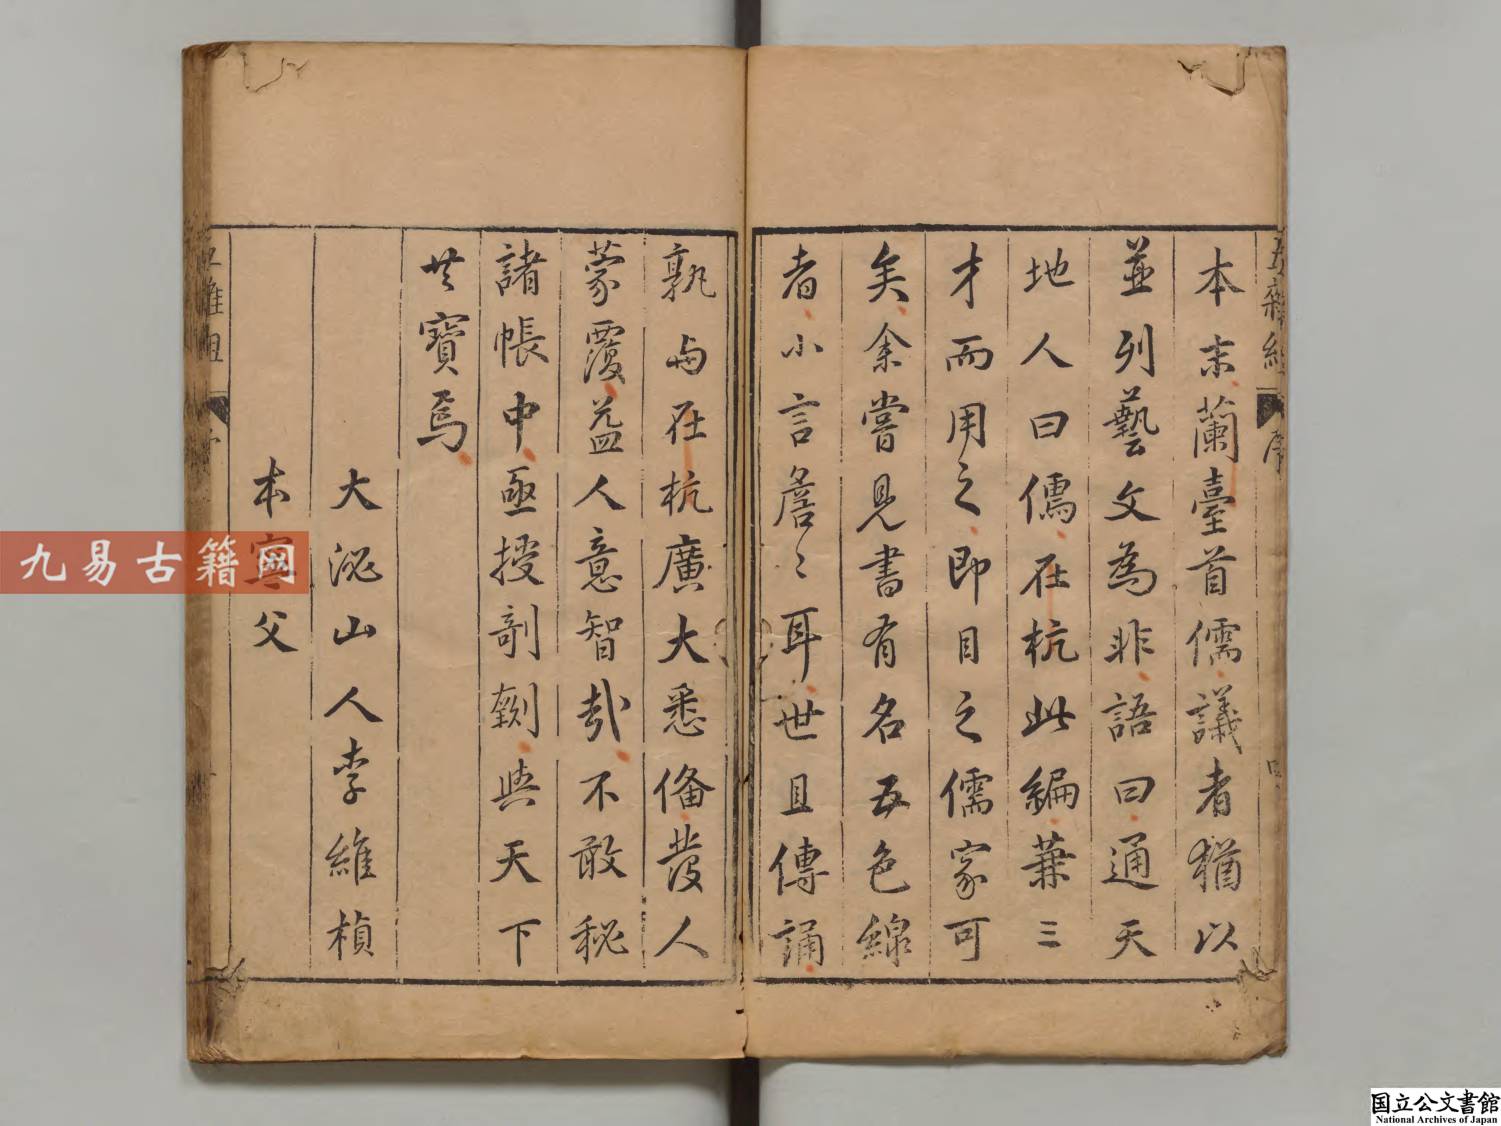 五雜組
序
本末蘭臺首儒議者猶以
並列藝文為非語曰通天
地人曰儒在杭此編兼三
才而用之即目之儒家可
矣余嘗見書有名五色線
者小言詹〻耳世且傳誦
孰與在杭廣大悉備發人
蒙覆益人意智哉不敢秘
諸帳中亟授剞劂與天下
共寶焉
大泌山人李維楨
本寧父
九易古籍网
国立公文書館
National Archives of Japan